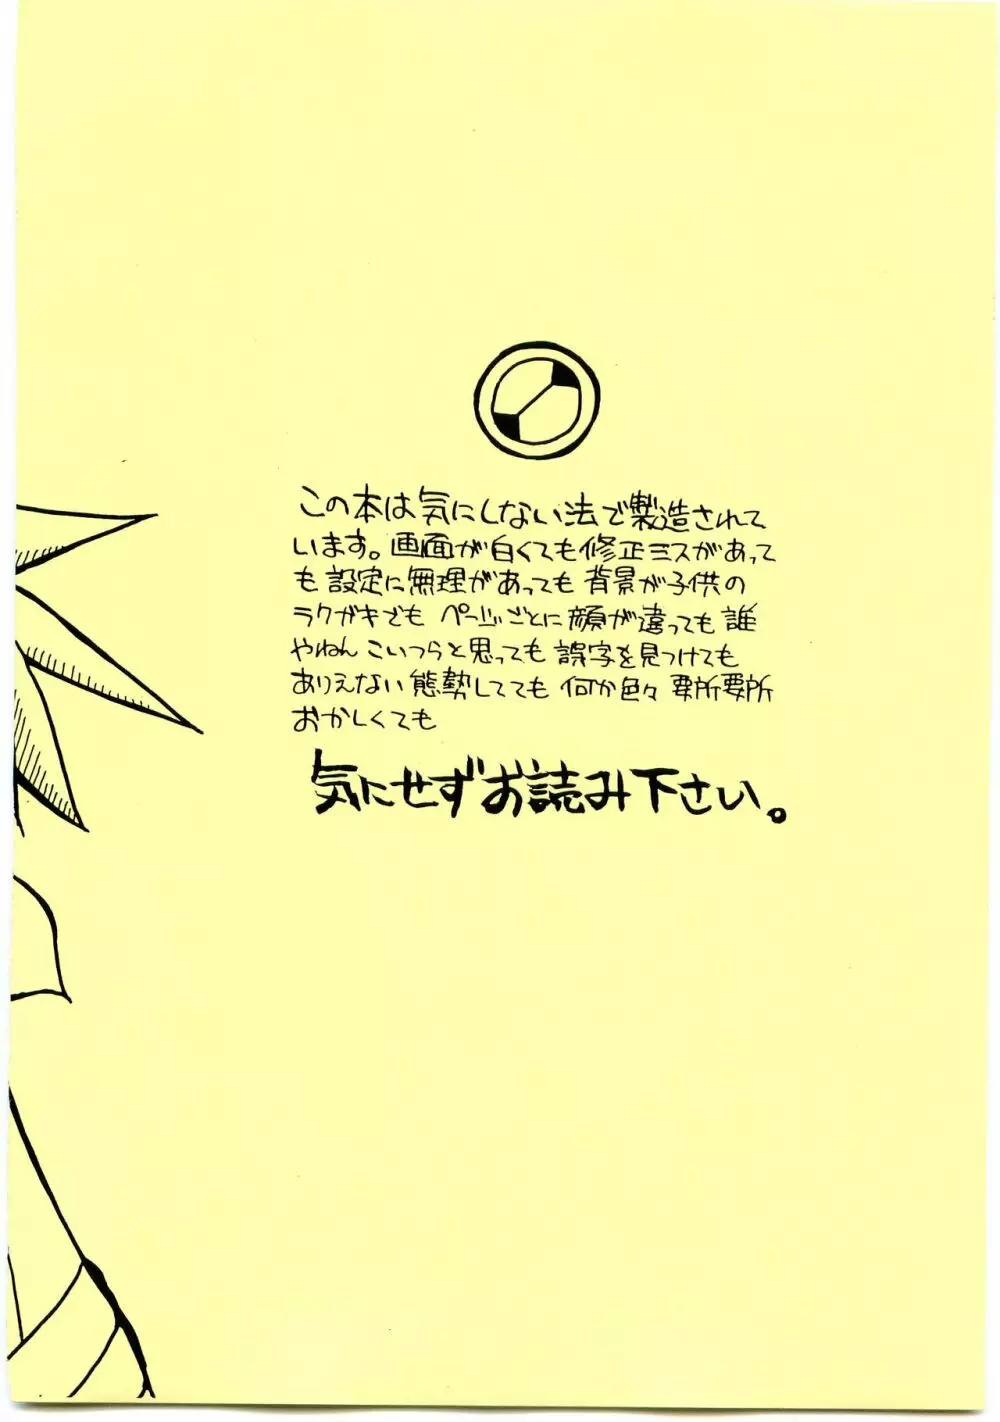 この本は気にしない法で製造されて
います。画面が白くても修正ミスがあって
も設定に無理があっても背景が子供の
ラクガキでも ページごとに顔が違っても 誰
やねん こいつらと思っても 誤字を見つけても
ありえない態勢してても 何か色々 要所要所
おかしくても
気にせずお読み下さい。